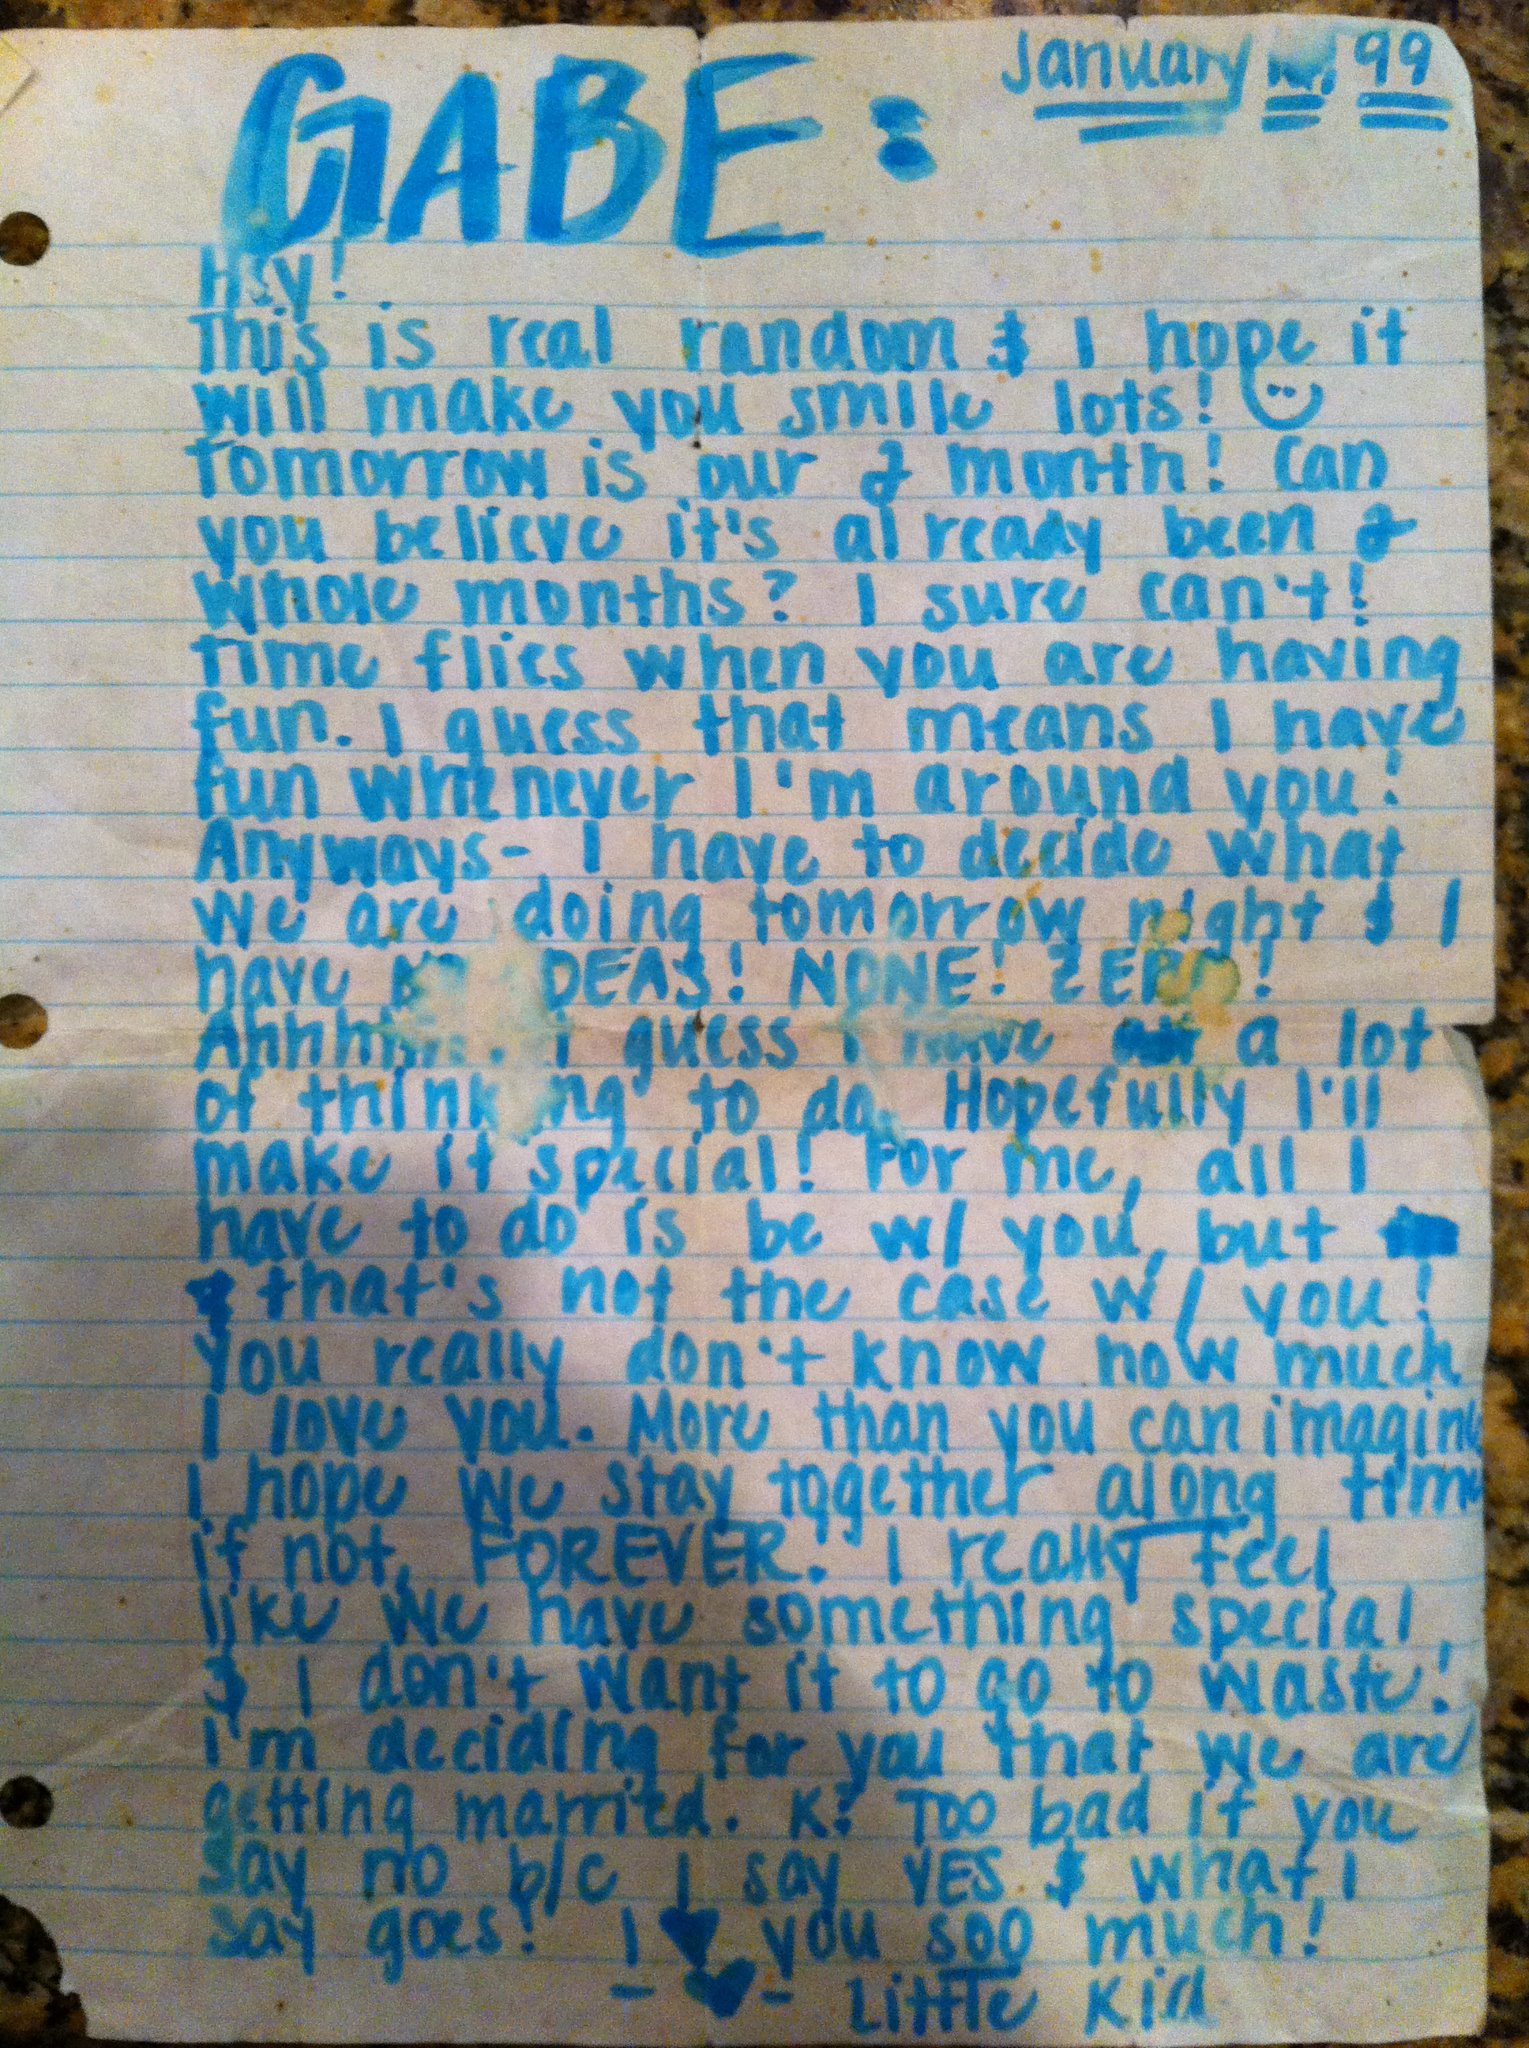 January 99
GABE:
Hey!
This is real random & I hope it
will make you smile lots!
Tomorrow is our 2 month! Can
you believe it's already been 2
whole months? I sure can't!
Time flies when you are having
fun. I guess that means I have
fun whenever I'm around you!
Anyways- I have to decide what
we are doing tomorrow night & I
have NO IDEAS! NONE! ZERO!
Ahhhhh. I guess I have a lot
of thinking to do. Hopefully I'll
make it special! For me, all I
have to do is be w/ you, but
that's not the case w/ you!
You really don't know how much
I love you. More than you can imagine
I hope we stay together along time
if not, FOREVER. I really feel
like we have something special,
& I don't want it to go to waste!
I'm deciding for you that we are
getting married. K? TOO bad if you
say no b/c I say YES & what I
say goes! I ♥ you soo much!
- ♥ - Little Kid